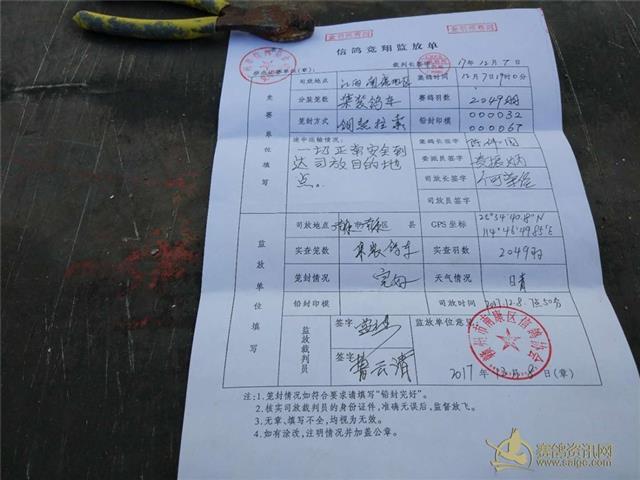 信鸽竞翔监放单
裁判长签字 17年12月7日
司放地点 江西南康地区 集鸽时间 12月7日19时0分
分装笼数 集装鸽车 赛鸽羽数 2049羽
笼封方式 钢丝拉索 铅封印模 000032
000067
途中运输情况:
一切正常安全到
达司放目的地
点。
集鸽长签字
委派员签字
司放长签字
司放员签字
竞赛单位填写
司放地点 县 GPS坐标 25°34′40.8″N
114°46′49.85″E
实查笼数 集装鸽车 实查羽数 2049羽
笼封情况 完好 天气情况 日青
铅封印模 司放时间 2017.12.8.7点50分
监放单位填写
监放裁判员
签字
签字 曹云清
监放单位意见
赣州市南康区信鸽协会
2017年12月8日(章)
注:1.笼封情况如符合要求请填写“铅封完好”。
2.核实司放裁判员的身份证件,准确无误后,监督放飞。
3.无章、填写不全,均视为无效。
4.如有涂改,注明情况并加盖公章。
赛鸽资讯网
www.saige.com